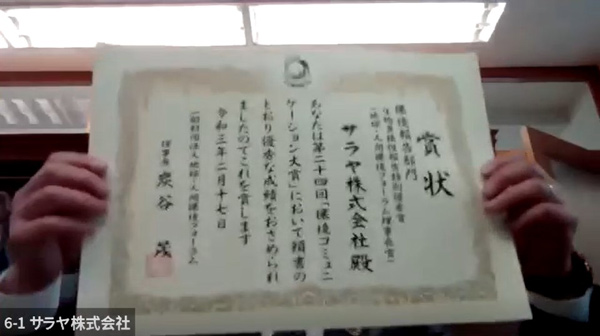 賞状
環境報告部門
生物多様性報告特別優秀賞
(地球・人間環境フォーラム理事長賞)
サラヤ株式会社 殿
あなたは第二十四回「環境コミュニ
ケーション大賞」において頭書の
とおり優秀な成績をおさめられ
ましたのでこれを賞します
令和三年二月十七日
一般財団法人地球・人間環境フォーラム
理事長 炭谷 茂
6-1 サラヤ株式会社